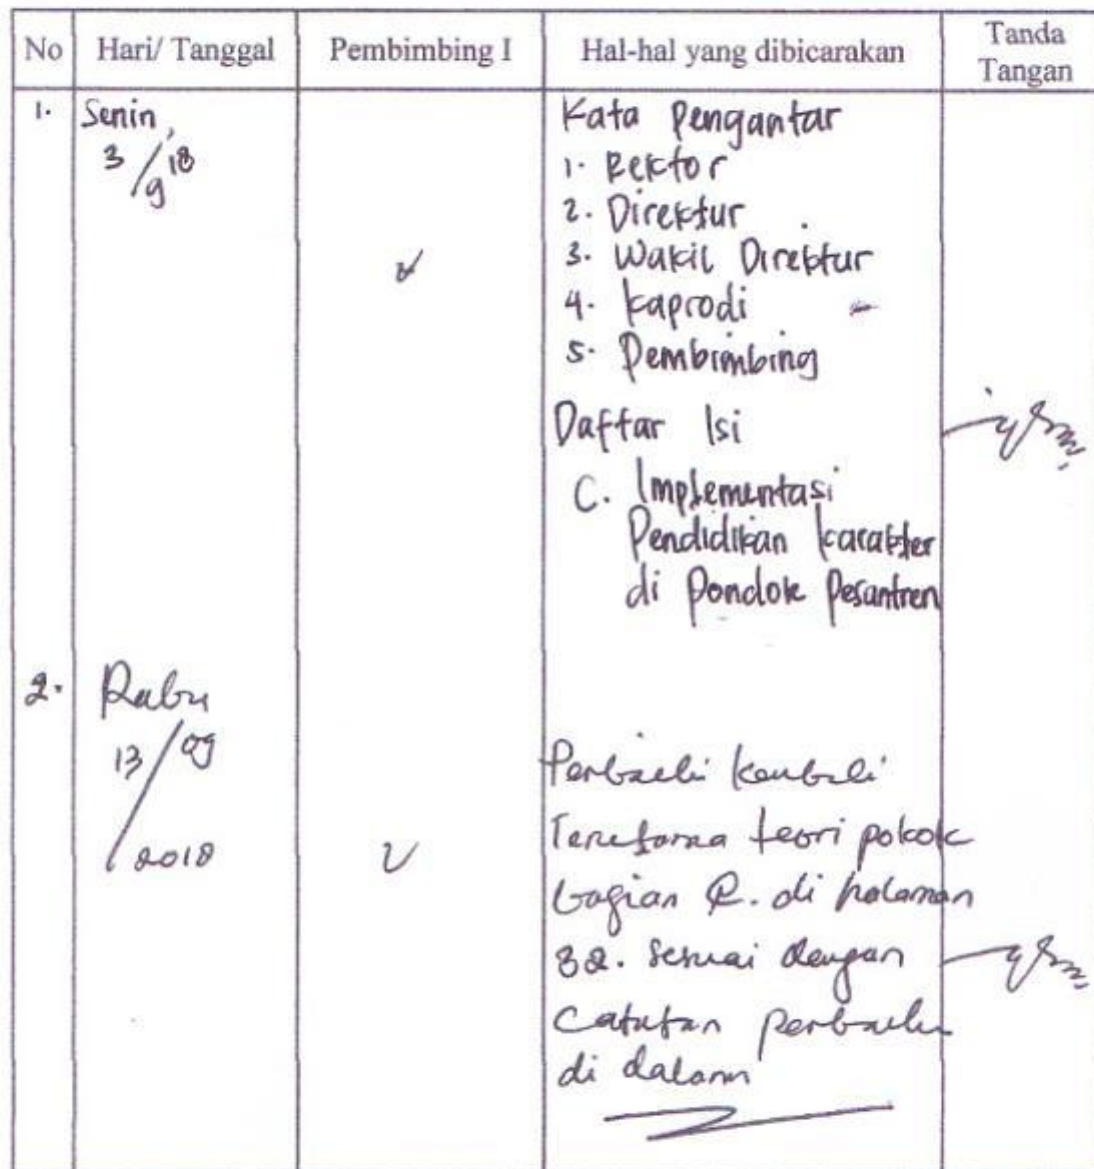 No Hari/ Tanggal Pembimbing I Hal-hal yang dibicarakan Tanda Tangan
1. Senin,
3/9 18
Kata Pengantar
1. Rektor
2. Direktur
3. Wakil Direktur
4. Kaprodi
5. Pembimbing
Daftar Isi
C. Implementasi
Pendidikan karakter
di Pondok Pesantren
2. Rabu
13/09
/2018
Perbaiki kembali
Terutama teori pokok
bagian C. di halaman
32. sesuai dengan
Catatan perbaiki
di dalam